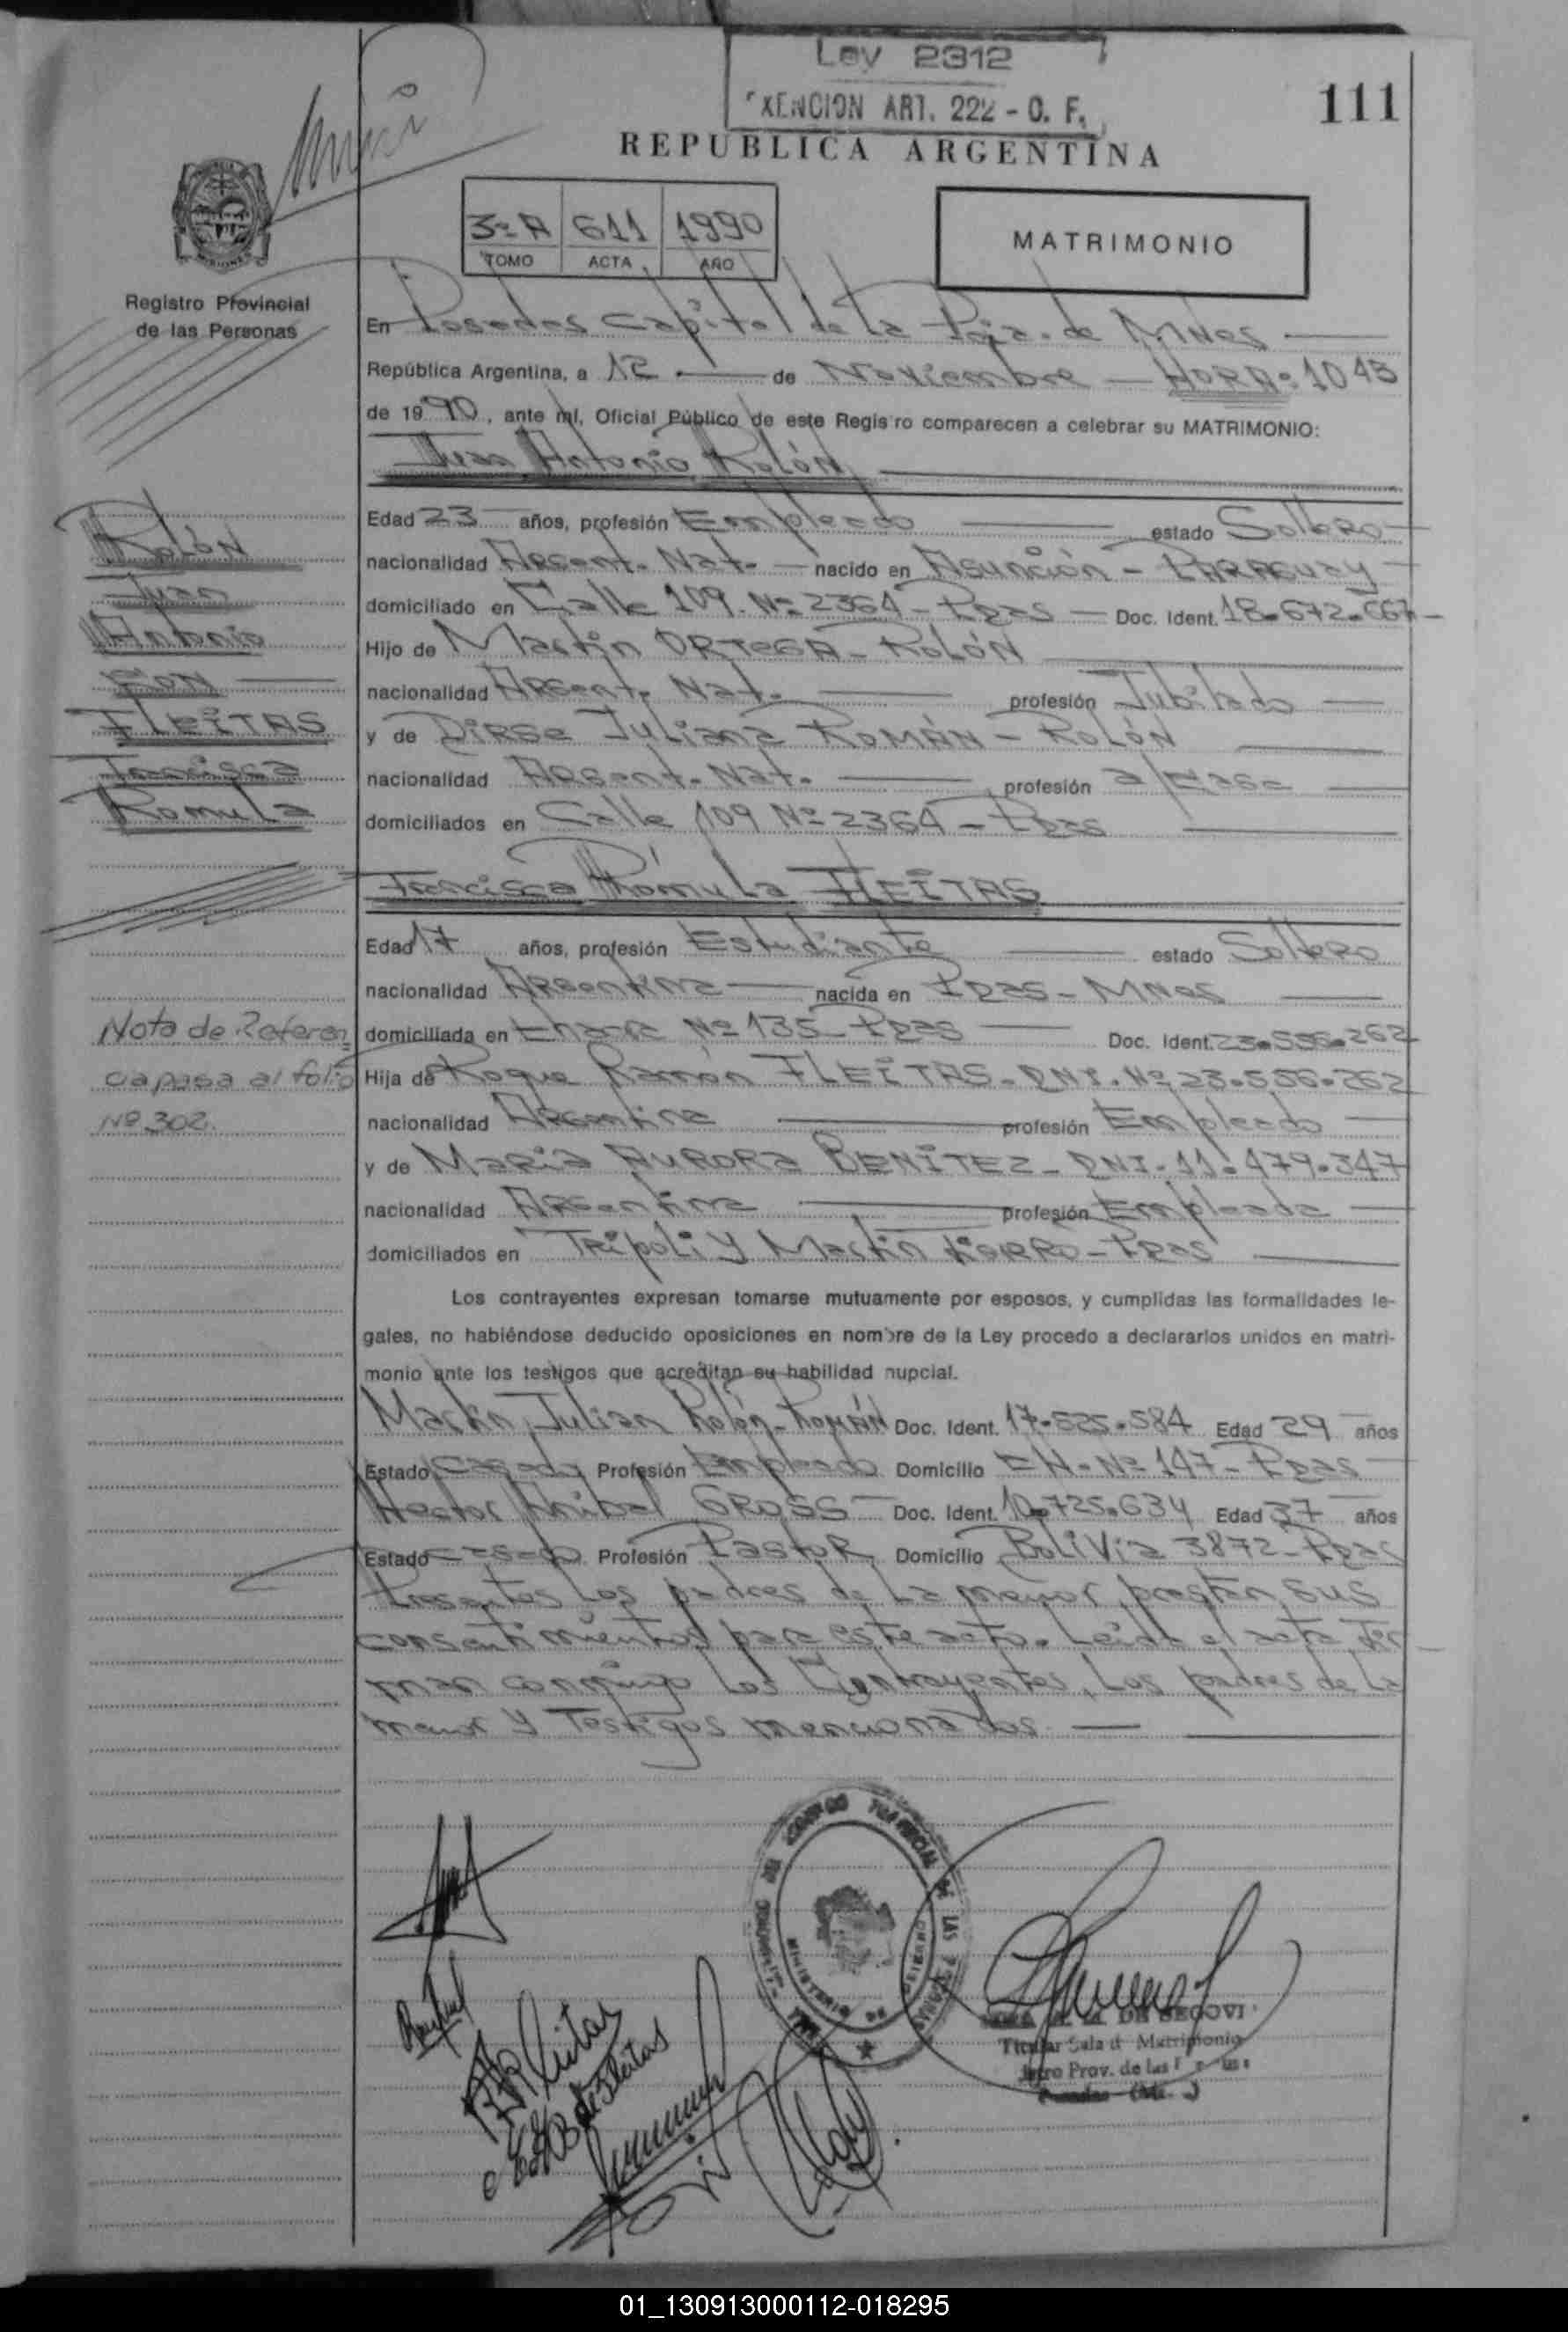 Ley 2312
EXENCION ART. 222 - C. F.
111
REPUBLICA ARGENTINA
3º A 611 1990
TOMO ACTA AÑO
MATRIMONIO
Registro Provincial
de las Personas
En Posadas Capital de La Pcia. de Mnes
República Argentina, a 12 de Noviembre HORA: 10 45
de 1990, ante mí, Oficial Público de este Registro comparecen a celebrar su MATRIMONIO:
Juan Antonio Rolón
Edad 23 años, profesión Empleado estado Soltero
nacionalidad Argent. Nat. nacido en Asunción - PARAGUAY
domiciliado en Calle 109 Nº 2364 - Pdas Doc. Ident. 18.672.667
Hijo de Martin ORTEGA - Rolón
nacionalidad Argent. Nat. profesión Jubilado
y de Dirse Juliana ROMÁN - Rolón
nacionalidad Argent. Nat. profesión a/casa
domiciliados en Calle 109 Nº 2364 - Pdas
Francisca Rómula FLEITAS
Edad 17 años, profesión Estudiante estado Soltero
nacionalidad Argentina nacida en Pdas - Mnes
domiciliada en Chacra Nº 135 Pdas Doc. Ident. 23.556.262
Hija de Roque Ramón FLEITAS - DNI. Nº 23.556.262
nacionalidad Argentina profesión Empleado
y de Maria AURORA BENITEZ - DNI. 11.479.347
nacionalidad Argentina profesión Empleada
domiciliados en Tripoli y Martin Fierro - Pdas
Los contrayentes expresan tomarse mutuamente por esposos, y cumplidas las formalidades le-
gales, no habiéndose deducido oposiciones en nombre de la Ley procedo a declararlos unidos en matri-
monio ante los testigos que acreditan su habilidad nupcial.
Martin Julian Rolón - Román Doc. Ident. 17.525.584 Edad 29 años
Estado Casado Profesión Empleado Domicilio CH. Nº 147 - Pdas
Hector Anibal GROSS Doc. Ident. 10.725.634 Edad 37 años
Estado casado Profesión Pastor Domicilio Bolivia 3872 - Pdas
Presentes los padres de La menor prestan sus
consentimientos para este acto. Leida el acta fir
man conmigo Los Contrayentes, Los padres de La
menor y Testigos mencionados.
Rolón
Juan
Antonio
CON
FLEITAS
Francisca
Romula
Nota de Referen
cia pasa al folio
Nº 302.
DE SEGOVI
Titular Sala d Matrimonio
Prov. de las
01_130913000112-018295